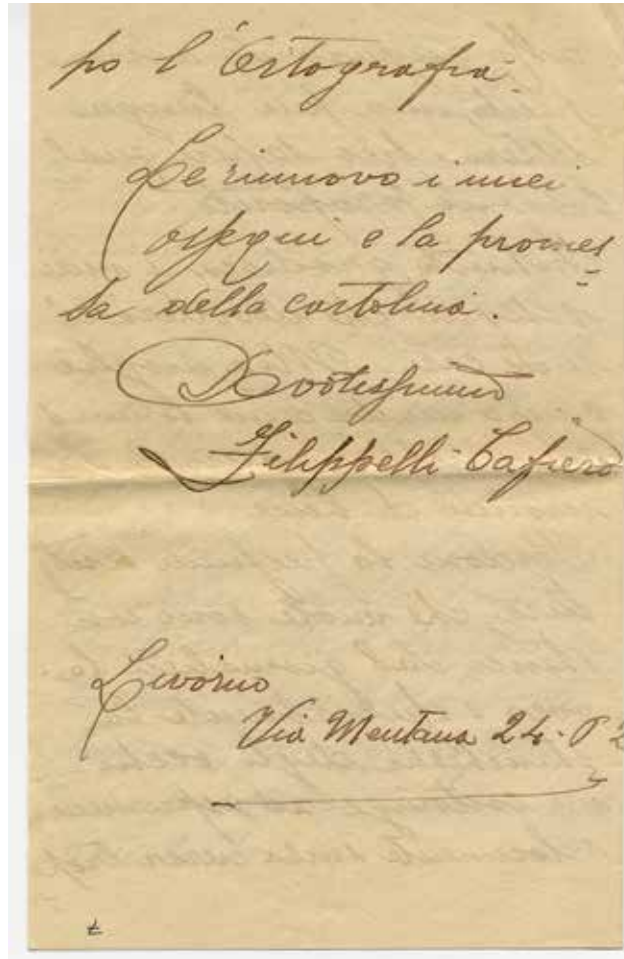 po l'Ortografia.
Le rinnovo i miei
ossequi e la promes=
sa della cartolina.
Devotissimo
Filippelli Cafiero
Livorno
Via Mentana 24 - P 2